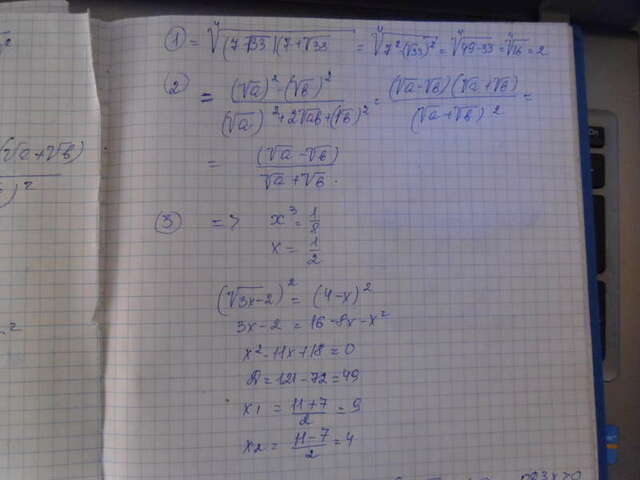 ① = ∜((7-√33)(7+√33 = ∜(7²-(√33)²) = ∜(49-33) = ∜16 = 2
② = ((√a)²-(√b)²)/((√a)²+2√ab+(√b)²) = ((√a-√b)(√a+√b))/((√a+√b)²) =
= (√a-√b)/(√a+√b).
③ => x³ = 1/8
x = 1/2
(√3x-2)² = (4-x)²
3x-2 = 16-8x-x²
x²-11x+18=0
D=121-72=49
x1 = (11+7)/2 = 9
x2 = (11-7)/2 = 4
(√a+√b)
)²